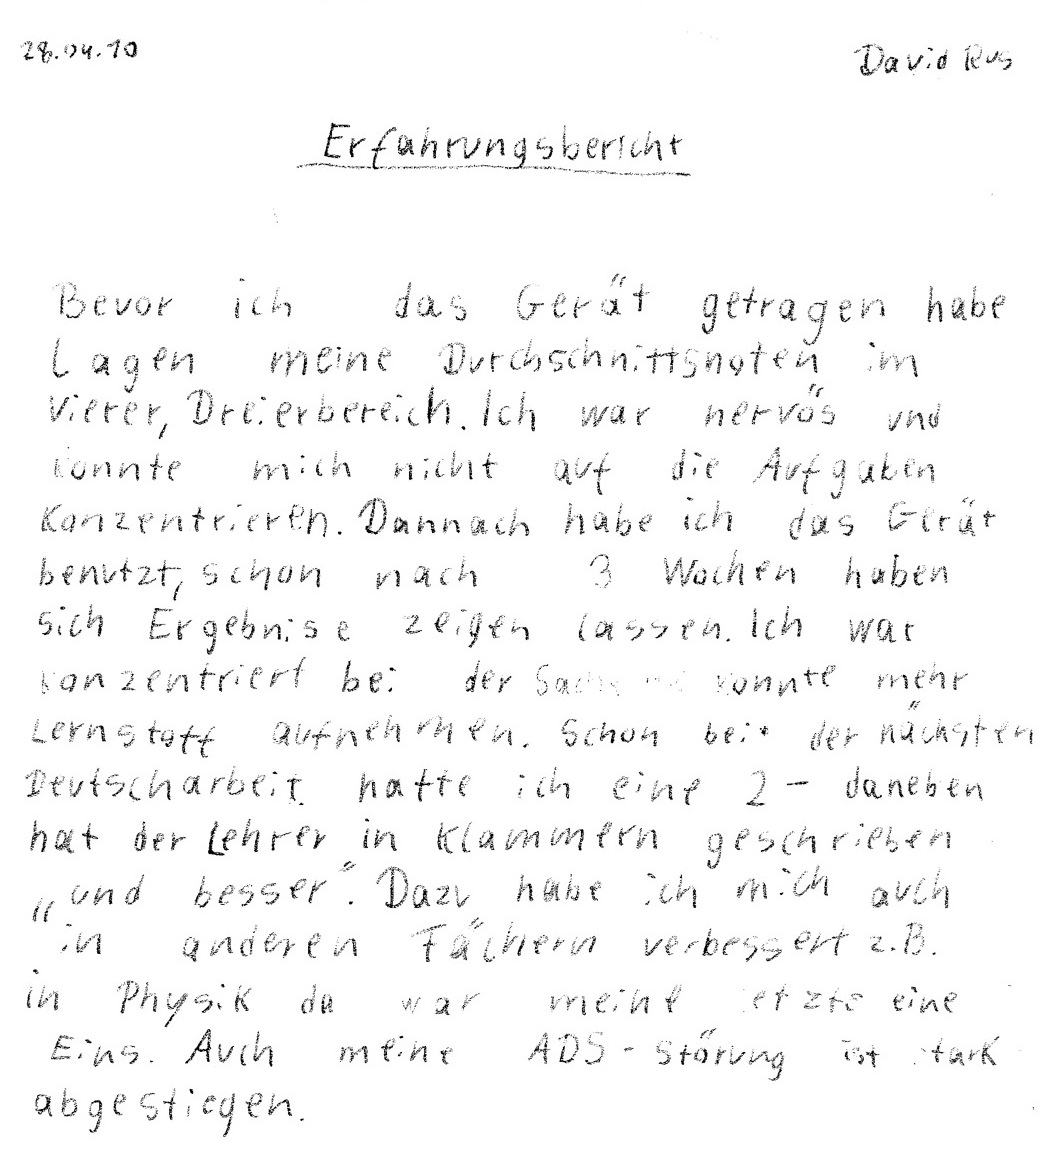 28.04.10
David Rus
Erfahrungsbericht
Bevor ich das Gerät getragen habe
Lagen meine Durchschnittsnoten im
Vierer, Dreierbereich. Ich war nervös und
konnte mich nicht auf die Aufgaben
Konzentrieren. Dannach habe ich das Gerät
benutzt, schon nach 3 Wochen haben
sich Ergebnise zeigen lassen. Ich war
konzentriert bei der konnte mehr
Lernstoff aufnehmen. Schon bei der nächsten
Deutscharbeit hatte ich eine 2 - daneben
hat der Lehrer in Klammern geschrieben
„und besser". Dazu habe ich mich auch
in anderen Fächern verbessert z.B.
in Physik da war meine letzte eine
Eins. Auch meine ADS - Störung ist stark
abgestiegen.